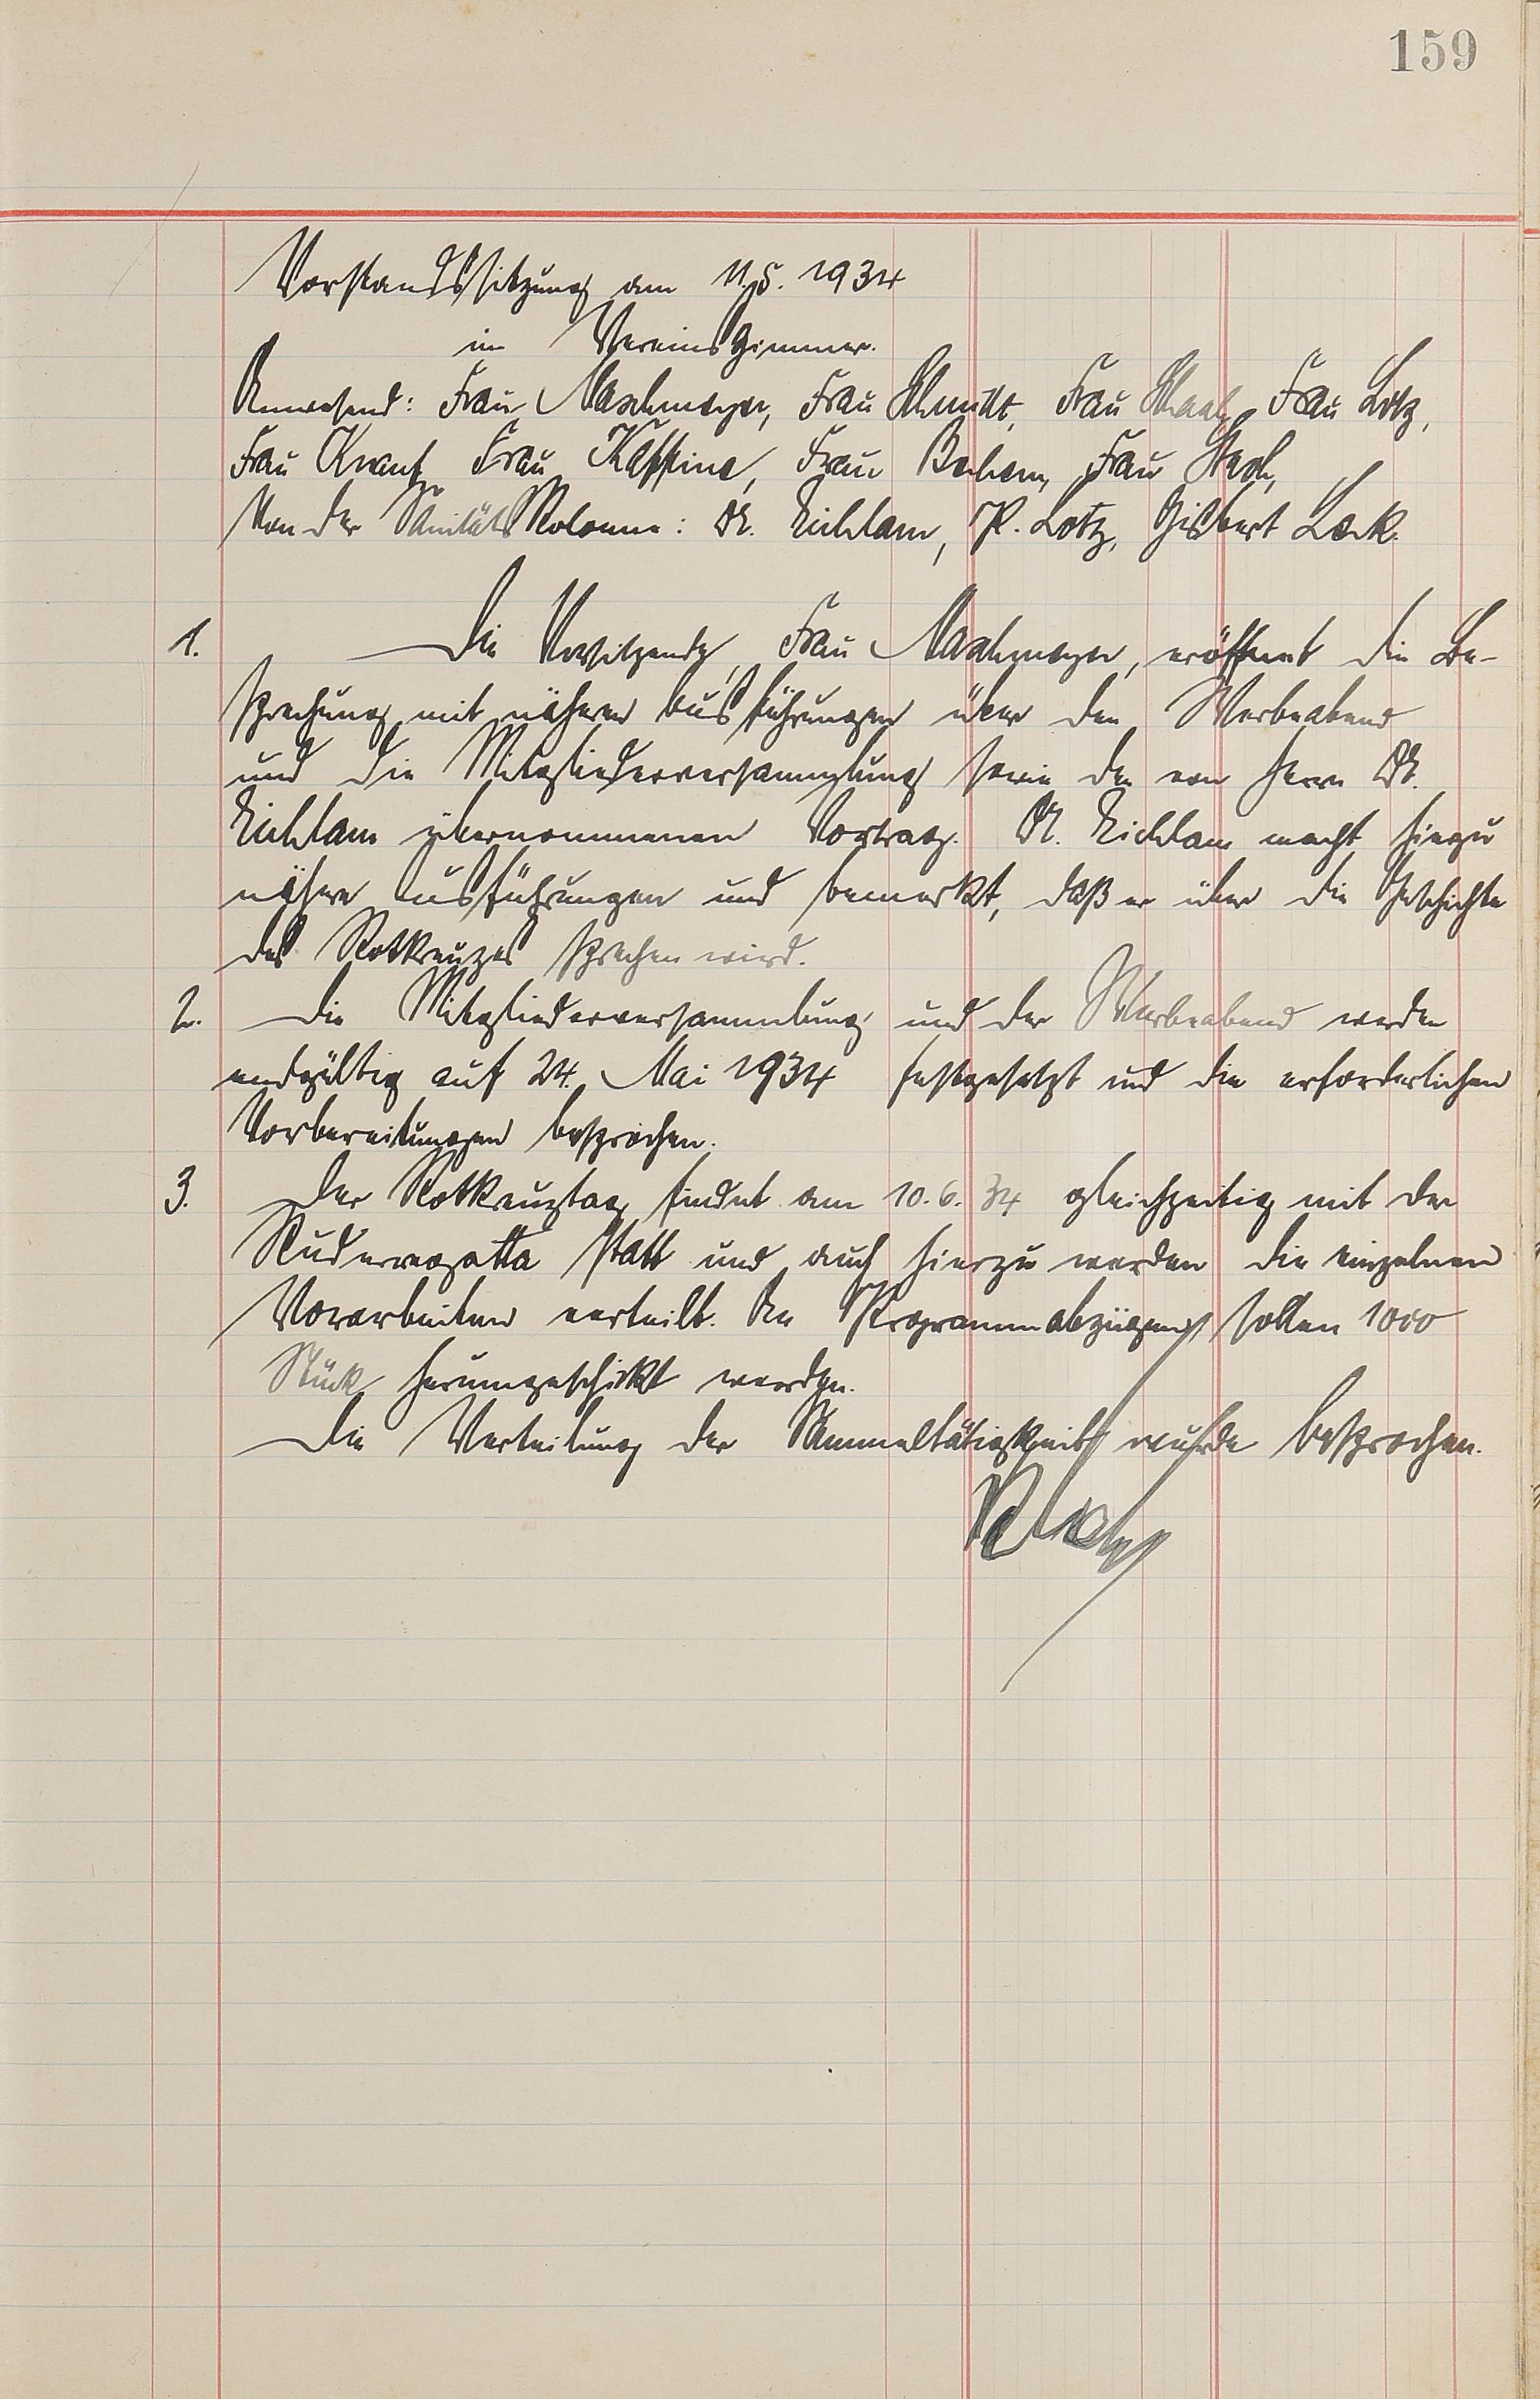 159
Vorstandssitzung am 11.5. 1934
im Vereinszimmer.
Anwesend: Frau Maschmeyer, Frau Schmidt, Frau Schaaf, Frau Lotz,
Frau Knauf, Frau Kassine, Frau Bechem, Frau Stroh,
Von der Sanitätskolonne: Dr. Eichlam, P. Lotz, Gisbert Lock.
1. Die Vorsitzende, Frau Maschmeyer, eröffnet die Be-
sprechung mit näheren Ausführungen über den Werbeabend
und die Mitgliederversammlung sowie den von Herrn Dr.
Eichlam übernommenen Vortrag. Dr. Eichlam macht hiezu
nähere Ausführungen und bemerkt, daß er über die Geschichte
des Rotkreuzes sprechen wird.
2. Die Mitgliederversammlung und der Werbeabend werden
endgültig auf 24. Mai 1934 festgesetzt und die erforderlichen
Vorbereitungen besprochen.
3. Der Rotkreuztag findet am 10.6.34 gleichzeitig mit der
Ruderregatta statt und auch hierzu werden die einzelnen
Vorarbeiten verteilt. An Programmabzügen sollen 1000
Stück herumgeschickt werden.
Die Verteilung der Sammeltätigkeit wurde besprochen.